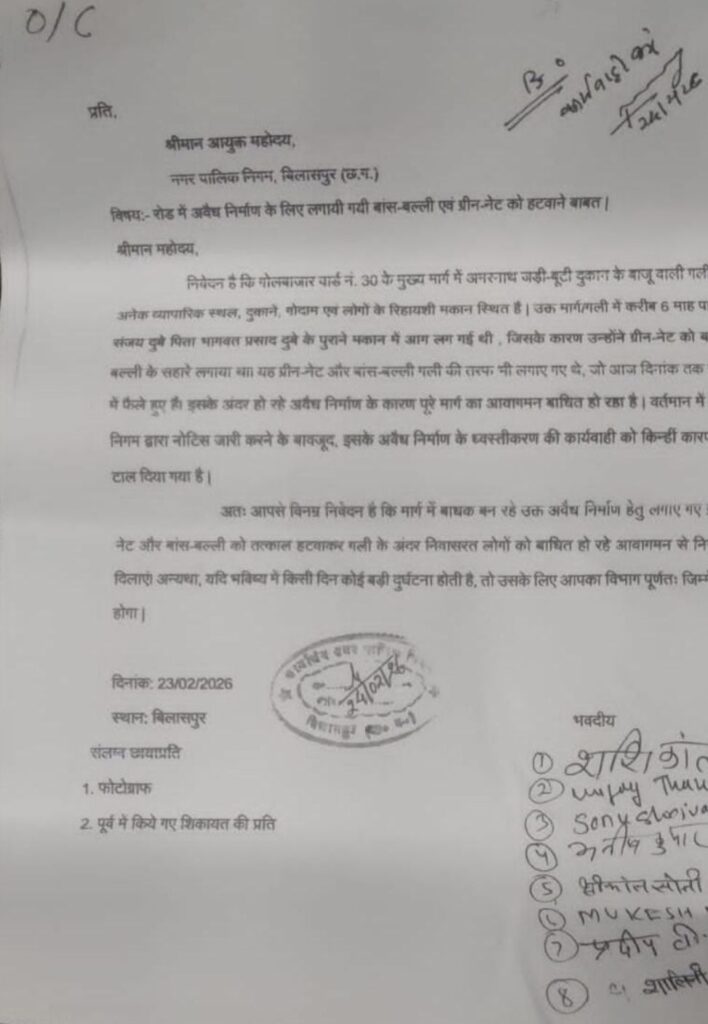 O/C
कार्यवाही करें
प्रति,
श्रीमान आयुक्त महोदय,
नगर पालिक निगम, बिलासपुर (छ.ग.)
विषय:- रोड में अवैध निर्माण के लिए लगायी गयी बांस-बल्ली एवं ग्रीन-नेट को हटवाने बाबत |
श्रीमान महोदय,
निवेदन है कि गोलबाजार वार्ड नं. 30 के मुख्य मार्ग में अमरनाथ जड़ी-बूटी दुकान के बाजू वाली गली
अनेक व्यापारिक स्थल, दुकानें, गोदाम एवं लोगों के रिहायशी मकान स्थित है | उक्त मार्ग/गली में करीब 6 माह
संजय दुबे पिता भागवत प्रसाद दुबे के पुराने मकान में आग लग गई थी , जिसके कारण उन्होंने ग्रीन-नेट को
बल्ली के सहारे लगाया था। यह ग्रीन-नेट और बांस-बल्ली गली की तरफ भी लगाए गए थे, जो आज दिनांक तक
में फैले हुए हैं। इसके अंदर हो रहे अवैध निर्माण के कारण पूरे मार्ग का आवागमन बाधित हो रहा है | वर्तमान में
निगम द्वारा नोटिस जारी करने के बावजूद, इसके अवैध निर्माण के ध्वस्तीकरण की कार्यवाही को किन्हीं
टाल दिया गया है |
अतः आपसे विनम्र निवेदन है कि मार्ग में बाधक बन रहे उक्त अवैध निर्माण हेतु लगाए गए
नेट और बांस-बल्ली को तत्काल हटवाकर गली के अंदर निवासरत लोगों को बाधित हो रहे आवागमन से
दिलाएं। अन्यथा, यदि भविष्य में किसी दिन कोई बड़ी दुर्घटना होती है, तो उसके लिए आपका विभाग पूर्णतः
होगा |
24/02/26
दिनांक: 23/02/2026
स्थान: बिलासपुर
भवदीय
संलग्न छायाप्रति
1. फोटोग्राफ
2. पूर्व में किये गए शिकायत की प्रति
① शशिकांत
②
③ Sony
④
⑤ श्रीकांत सोनी
⑥ MUKESH
⑦ प्रदीप
⑧ शालिनी